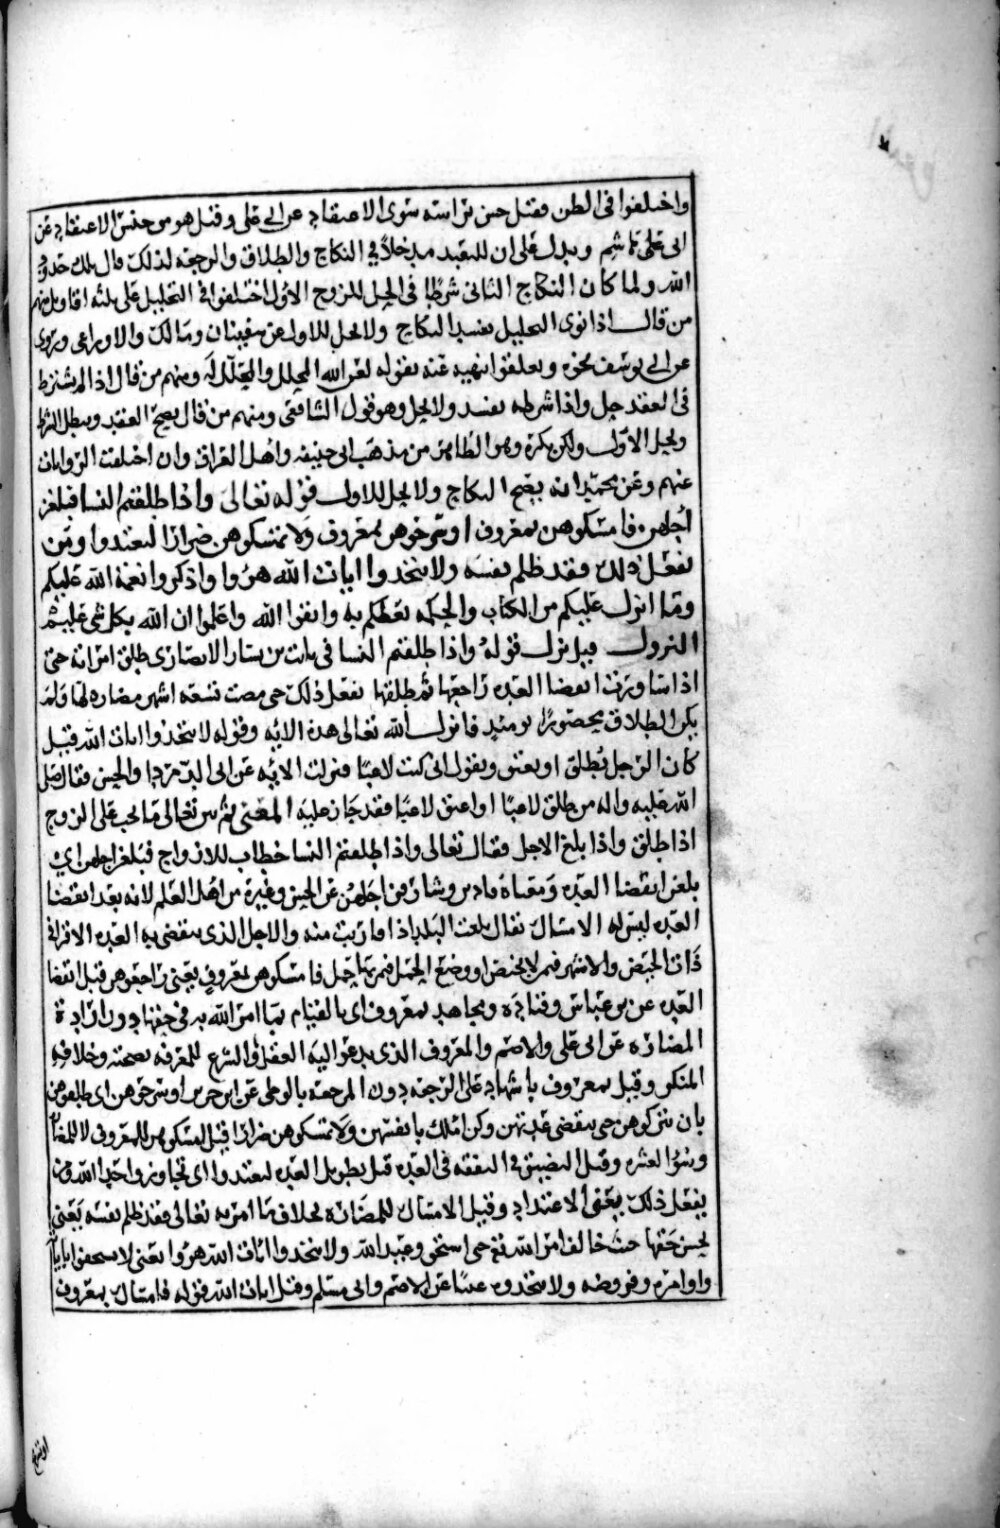 واختلفوا في الظن فقيل جنس براسه سوى الاعتقاد عن ابي علي وقيل هو من جنس الاعتقاد عن
ابي هاشم ويدل على ان للتقييد مدخلا في النكاح والطلاق والرجعة لذلك قال تلك حدود
الله ولما كان النكاح الثاني شرطا في الحل للزوج الاول اختلفوا في التحليل على ثلثة اقاويل منهم
من قال اذا نوى التحليل يفسد النكاح ولا تحل للاول عن سفينان ومالك والاوزاعي وروي
عن ابي يوسف نحوه وتعلقوا بنهيه عنه بقوله لعن الله المحلل والمحلل له ومنهم من قال اذا لم يشترط
في العقد حل واذا شرطه يفسد ولا يحل وهو قول الشافعي ومنهم من قال يصح العقد ويبطل الشرط
ويحل الاول ولكن يكره وهو الظاهر من مذهب ابي حنيفه واهل العراق وان اختلفت الروايات
عنهم وعن محمد انه يصح النكاح ولا يحل للاول قوله تعالى واذا طلقتم النسا فبلغن
اجلهن فامسكوهن بمعروف او سرحوهن بمعروف ولا تمسكوهن ضرارا لتعتدوا ومن
يفعل ذلك فقد ظلم نفسه ولا تتخذوا ايات الله هزوا واذكروا نعمة الله عليكم
وما انزل عليكم من الكتاب والحكمه يعظكم به واتقوا الله واعلموا ان الله بكل شي عليم
النزول قيل نزل قوله واذا طلقتم النسا في ثابت بن يسار الانصاري طلق امراته حتى
اذا شارفت انقضا العده راجعها ثم طلقها يفعل ذلك حتى مضت تسعه اشهر مضاره لها ولم
يكن الطلاق محصورا يومئذ فانزل الله تعالى هذه الايه وقوله لا تتخذوا ايات الله قيل
كان الرجل يطلق او يعتق ويقول اني كنت لاعبا فنزلت الايه عن ابي الدرداء والحسن فقال صلى
الله عليه واله من طلق لاعبا او اعتق لاعبا فقد جاز عليه المعنى ثم بين تعالى ما يجب على الزوج
اذا طلق واذا بلغ الاجل فقال تعالى واذا طلقتم النسا خطاب للازواج فبلغن اجلهن اي
بلغن انقضا العده ومعناه قاربن وشارفن اجلهن عن الحسن وغيره من اهل العلم لانه بعد انقضا
العده ليس له الامساك يقال بلغت البلد اذا قاربت منه والاجل الذي ينقضي به العده الاقراء
ذات الحيض والاشهر فمن لا تحيض او وضع الحمل فمن بها حمل فامسكوهن بمعروف يعني راجعوهن قبل انقضا
العده عن بن عباس وقتاده ومجاهد بمعروف اي بالقيام بما امر الله به في حقها دون ارادة
المضاره عن ابي علي والاصم والمعروف الذي يدعو اليه العقل والشرع للمعرفه بصحته وخلافه
المنكر وقيل بمعروف باشهاد على الرجعه دون المرجعه بالوطي عن ابن جرير او سرحوهن اي طلقوهن
بان تتركوهن حتى ينقضي عدتهن وكن املك بانفسهن ولا تمسكوهن ضرارا قيل امسكوهن للمعروف لا للمضاره
وسوء العشره وقيل التضييق في النفقه في العده قيل بطويل العده لتعتدوا اي تجاوزوا حد الله ومن
يفعل ذلك يعني الاعتداد وقيل الامساك للمضاره بخلاف ما امر به تعالى فقد ظلم نفسه يعني
بخس حقها حيث خالف امر الله تع حتى استحق وعيد الله ولا تتخذوا ايات الله هزوا يعني لا تستخفوا باياته
واوامره وفروضه ولا تتخذوه عبثا عن الاصم وابي مسلم وقيل ايات الله قوله فامساك بمعروف